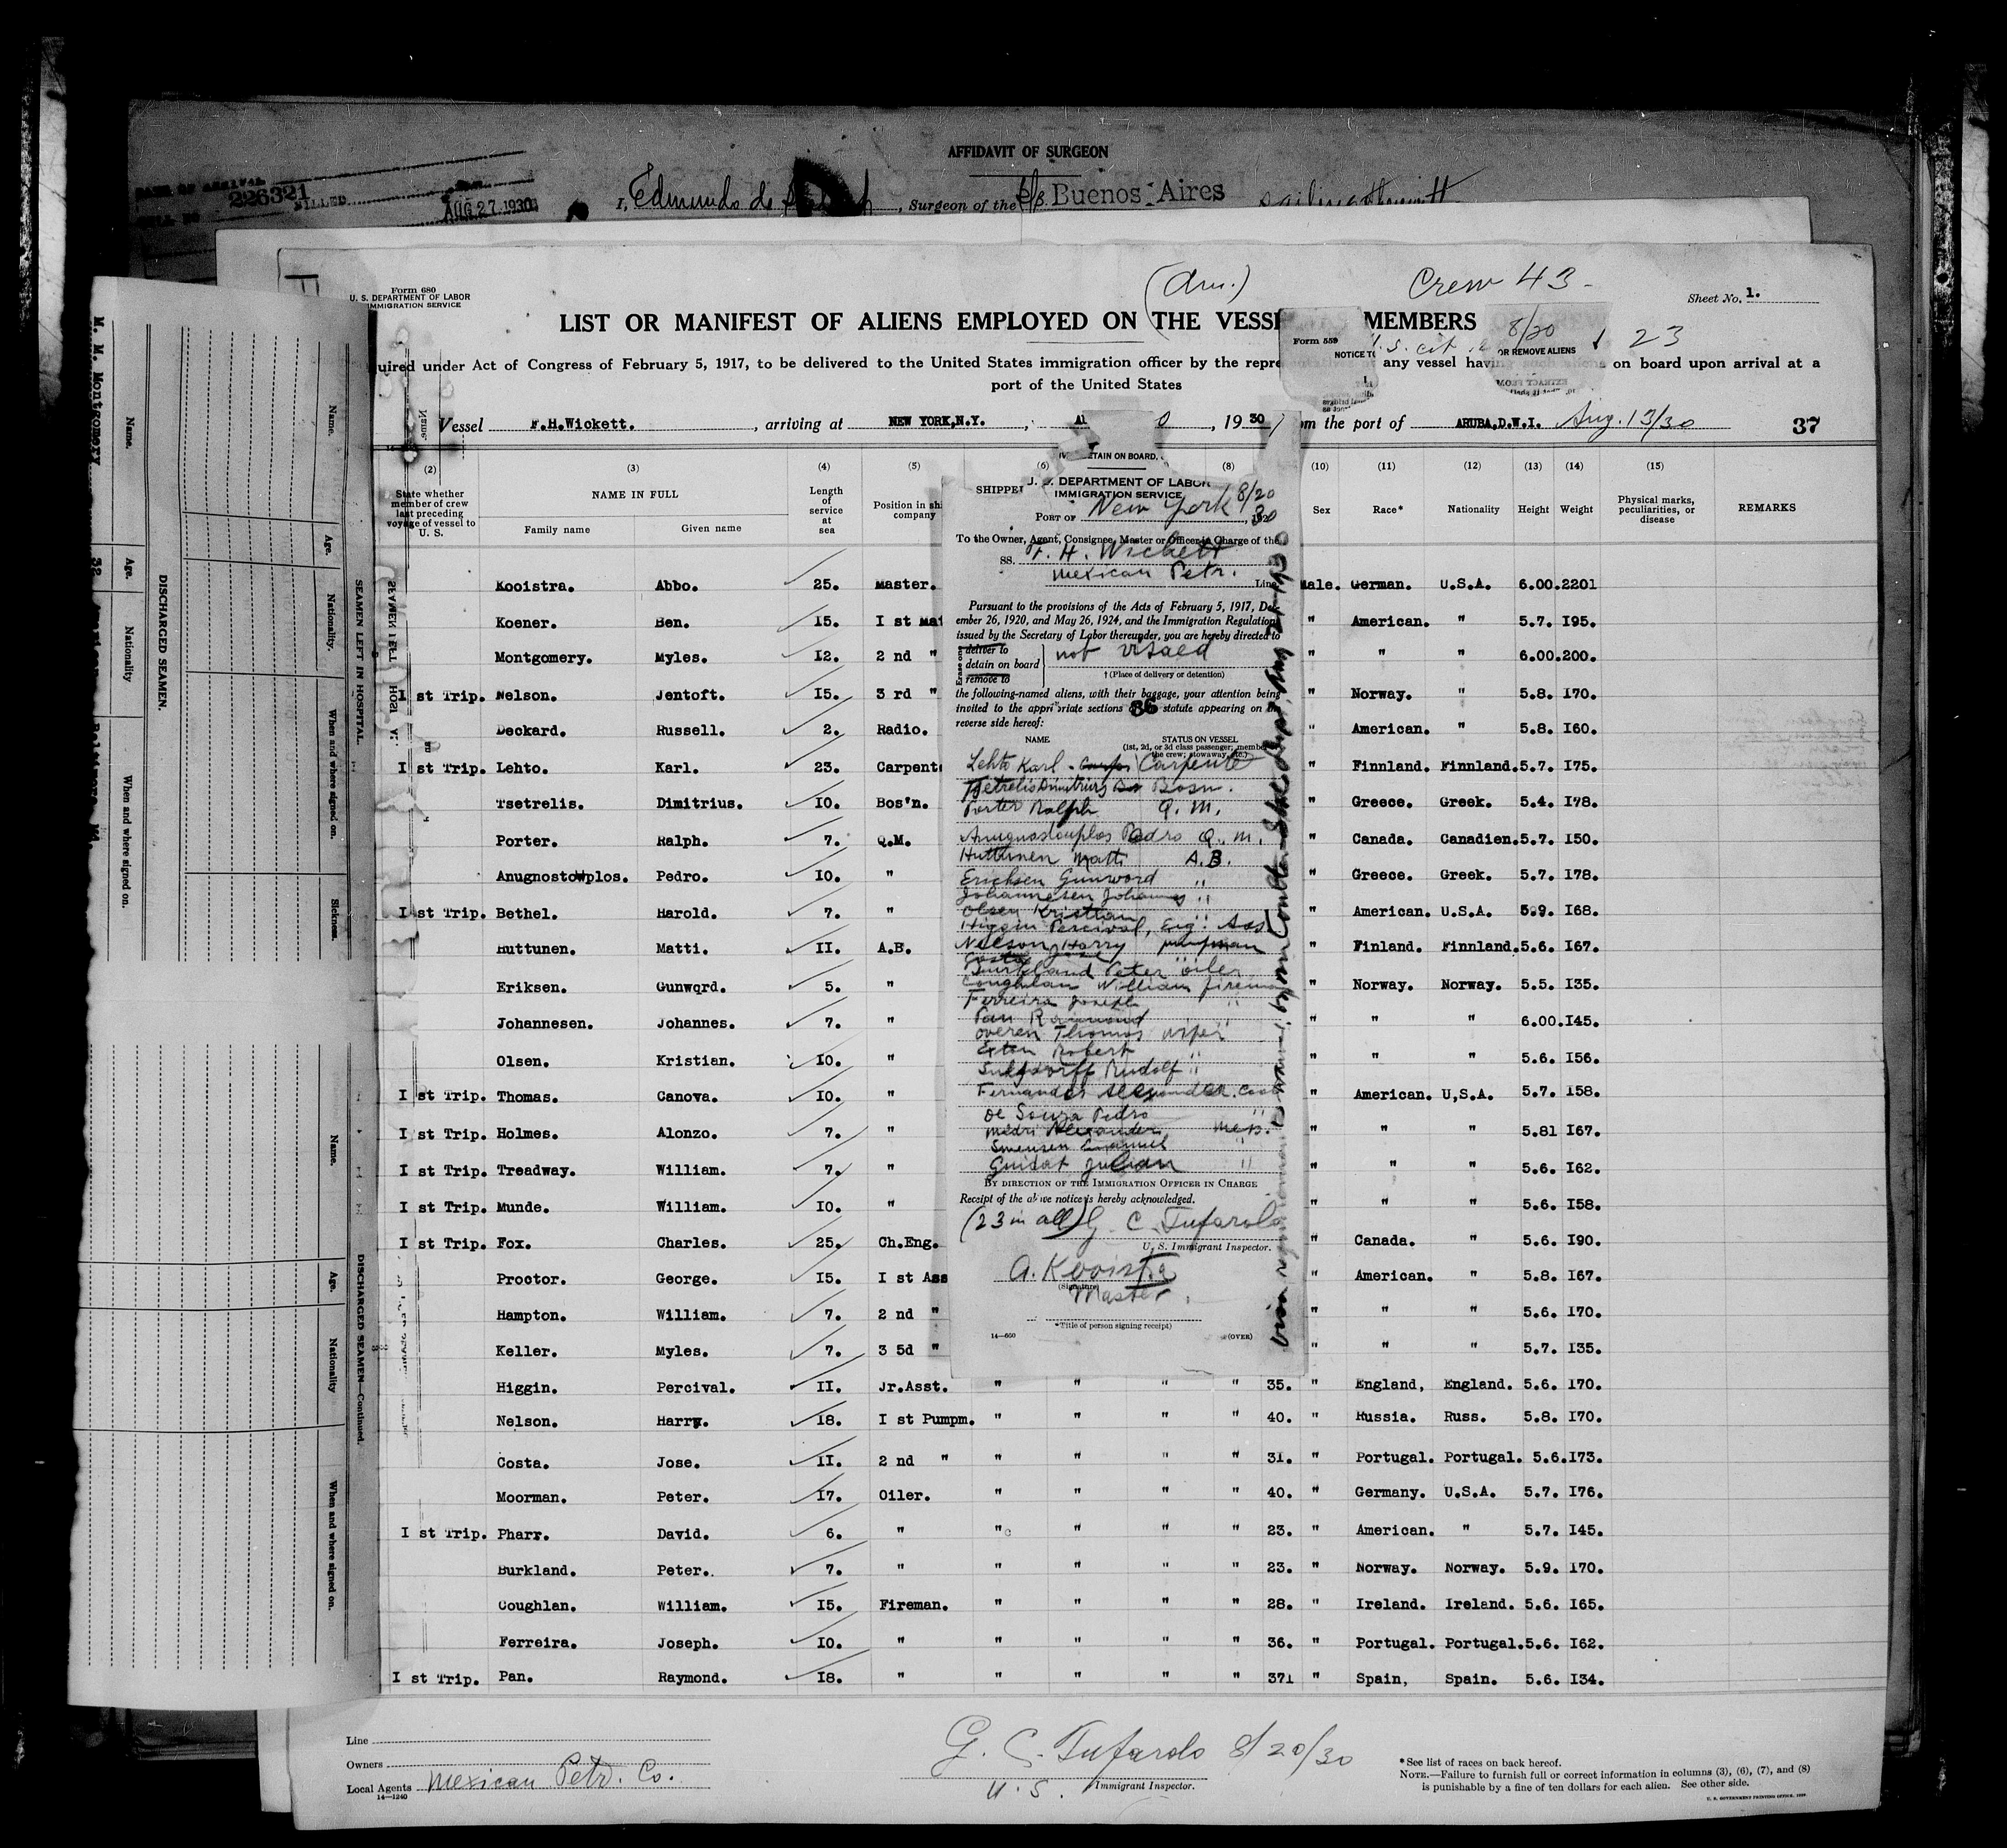 AFFIDAVIT OF SURGEON
226321
AUG 27 1930
I, Edmundo de , Surgeon of the S/S Buenos Aires
(Am.)
Crew 43
Form 680
U. S. DEPARTMENT OF LABOR
IMMIGRATION SERVICE
Sheet No. 1.
LIST OR MANIFEST OF ALIENS EMPLOYED ON THE VESSE MEMBERS
8/20
23
Form 559
NOTICE TO OR REMOVE ALIENS
uired under Act of Congress of February 5, 1917, to be delivered to the United States immigration officer by the repre any vessel having such aliens on board upon arrival at a
port of the United States
Vessel F.H.Wickett. , arriving at NEW YORK,N.Y. , 1930 om the port of ARUBA,D.W.I. Aug. 13/30 37
(2) (3) (4) (5) (6) (8) (10) (11) (12) (13) (14) (15)
State whether member of crew last preceding voyage of vessel to U. S.
NAME IN FULL
Family name Given name
Length of service at sea
Position in shi company
SHIPPE
Sex Race* Nationality Height Weight
Physical marks, peculiarities, or disease
REMARKS
Kooistra. Abbo. 25. Master. Male. German. U.S.A. 6.00.2201
Koener. Ben. 15. I st Mat " American. " 5.7. I95.
Montgomery. Myles. 12. 2 nd " " " " 6.00.200.
I st Trip. Nelson. Jentoft. I5. 3 rd " " Norway. " 5.8. I70.
Deckard. Russell. 2. Radio. " American. " 5.8. I60.
I st Trip. Lehto. Karl. 23. Carpent " Finnland. Finnland. 5.7. I75.
Tsetrelis. Dimitrius. IO. Bos'n. " Greece. Greek. 5.4. I78.
Porter. Ralph. 7. Q.M. " Canada. Canadien. 5.7. I50.
Anugnostowplos. Pedro. IO. " " Greece. Greek. 5.7. I78.
I st Trip. Bethel. Harold. 7. " " American. U.S.A. 5.9. I68.
Huttunen. Matti. II. A.B. " Finland. Finnland. 5.6. I67.
Eriksen. Gunwqrd. 5. " " Norway. Norway. 5.5. I35.
Johannesen. Johannes. 7. " " " " 6.00.I45.
Olsen. Kristian. IO. " " " " 5.6. I56.
I st Trip. Thomas. Canova. IO. " " American. U,S.A. 5.7. I58.
I st Trip. Holmes. Alonzo. 7. " " " " 5.81 I67.
I st Trip. Treadway. William. 7. " " " " 5.6. I62.
I st Trip. Munde. William. IO. " " " " 5.6. I58.
I st Trip. Fox. Charles. 25. Ch.Eng. " Canada. " 5.6. I90.
Proctor. George. I5. I st Ass " American. " 5.8. I67.
Hampton. William. 7. 2 nd " " " " 5.6. I70.
Keller. Myles. 7. 3 5d " " " " 5.7. I35.
Higgin. Percival. II. Jr.Asst. " " " " 35. " England, England. 5.6. I70.
Nelson. Harry. I8. I st Pumpm. " " " " 40. " Russia. Russ. 5.8. I70.
Costa. Jose. II. 2 nd " " " " " 31. " Portugal. Portugal. 5.6.I73.
Moorman. Peter. I7. Oiler. " " " " 40. " Germany. U.S.A. 5.7. I76.
I st Trip. Pharr. David. 6. " " " " " 23. " American. " 5.7. I45.
Burkland. Peter. 7. " " " " " 23. " Norway. Norway. 5.9. I70.
Coughlan. William. I5. Fireman. " " " " 28. " Ireland. Ireland. 5.6. I65.
Ferreira. Joseph. IO. " " " " " 36. " Portugal. Portugal. 5.6. I62.
I st Trip. Pan. Raymond. I8. " " " " " 371 " Spain, Spain. 5.6. I34.
ETAIN ON BOARD,
J. S. DEPARTMENT OF LABOR
IMMIGRATION SERVICE
PORT OF New York 8/20 30
To the Owner, Agent, Consignee, Master or Officer in Charge of the
SS. F. H. Wickett
Mexican Petr. Line
Pursuant to the provisions of the Acts of February 5, 1917, De-
cember 26, 1920, and May 26, 1924, and the Immigration Regulations
issued by the Secretary of Labor thereunder, you are hereby directed to
deliver to
detain on board not visaed
remove to
† (Place of delivery or detention)
the following-named aliens, with their baggage, your attention being
invited to the appropriate sections of statute appearing on
reverse side hereof:
36
NAME STATUS ON VESSEL
(1st, 2d, or 3d class passenger; member
the crew; stowaway, etc.)
Lehto Karl Carpente
Tsetrelis Dimitrius Bosn.
Porter Ralph Q. M.
Anugnostouplos Pedro Q. M.
Huttunen Matti A.B.
Ericksen Gunword "
Johannesen Johannes "
Olsen Kristian "
Higgin Percival, Eng. Ass
Nelson Harry pumpman
Costa Jose "
Burkland Peter oiler
Coughlan William fireman
Ferreira Joseph "
Pan Raimond "
Overen Thomas wiper
Robert "
Rudolf "
Fernandes Cook
De Souza Pedro "
Medri Alexander Mess.
Swensen Emanuel "
Guidot Julian "
BY DIRECTION OF THE IMMIGRATION OFFICER IN CHARGE
Receipt of the above notice is hereby acknowledged.
(23 in all) G. C. Tufarolo
U. S. Immigrant Inspector.
A. Kooistra
(Signature)
Master.
*Title of person signing receipt)
14—660 (OVER)
M. M. Montgomery
32
Name. Age. Nationality When and where signed on.
DISCHARGED SEAMEN.
Name. Age. Nationality. When and where signed on. Sickness.
SEAMEN LEFT IN HOSPITAL.
Name. Age. Nationality When and where signed on.
DISCHARGED SEAMEN—Continued.
Line
Owners
Local Agents Mexican Petr. Co.
14—1240
G. C. Tufarolo 8/20/30
U. S. Immigrant Inspector.
*See list of races on back hereof.
NOTE.—Failure to furnish full or correct information in columns (3), (6), (7), and (8)
is punishable by a fine of ten dollars for each alien. See other side.
U. S. GOVERNMENT PRINTING OFFICE